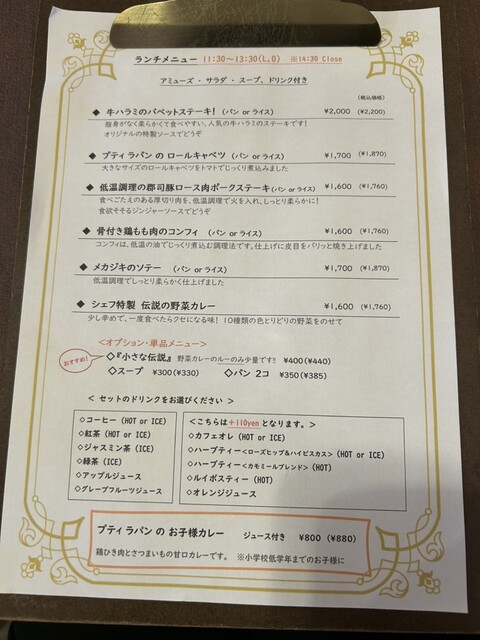 ランチメニュー 11:30～13:30(L.O) ※14:30 Close
アミューズ・サラダ・スープ、ドリンク付き
(税込価格)
◆ 牛ハラミのバベットステーキ! (パン or ライス) ¥2,000 (¥2,200)
脂身がなく柔らかくて食べやすい、人気の牛ハラミのステーキです!
オリジナルの特製ソースでどうぞ
◆ プティラパン の ロールキャベツ (パン or ライス) ¥1,700 (¥1,870)
大きなサイズのロールキャベツをトマトでじっくり煮込みました
◆ 低温調理の郡司豚ロース肉ポークステーキ(パン or ライス) ¥1,600 (¥1,760)
食べごたえのある厚切り肉を、低温調理で火を入れ、しっとり柔らかに!
食欲そそるジンジャーソースでどうぞ
◆ 骨付き鶏もも肉のコンフィ (パン or ライス) ¥1,600 (¥1,760)
コンフィは、低温の油でじっくり煮込む調理法です。仕上げに皮目をパリッと焼き上げました
◆ メカジキのソテー (パン or ライス) ¥1,700 (¥1,870)
低温調理でしっとり柔らかく仕上げました
◆ シェフ特製 伝説の野菜カレー ¥1,600 (¥1,760)
少し辛めで、一度食べたらクセになる味! 10種類の色とりどりの野菜をのせて
＜オプション・単品メニュー＞
おすすめ!
◇『小さな伝説』 野菜カレーのルーのみ少量です!! ¥400(¥440)
◇スープ ¥300(¥330) ◇パン 2コ ¥350(¥385)
＜ セットのドリンクをお選びください ＞
◇コーヒー (HOT or ICE)
◇紅茶 (HOT or ICE)
◇ジャスミン茶 (ICE)
◇緑茶 (ICE)
◇アップルジュース
◇グレープフルーツジュース
＜こちらは+110yenとなります。＞
◇カフェオレ (HOT or ICE)
◇ハーブティー<ローズヒップ&ハイビスカス> (HOT or ICE)
◇ハーブティー<カモミールブレンド> (HOT)
◇ルイボスティー (HOT)
◇オレンジジュース
プティラパン の お子様カレー ジュース付き ¥800 (¥880)
鶏ひき肉とさつまいもの甘口カレーです。 ※小学校低学年までのお子様に